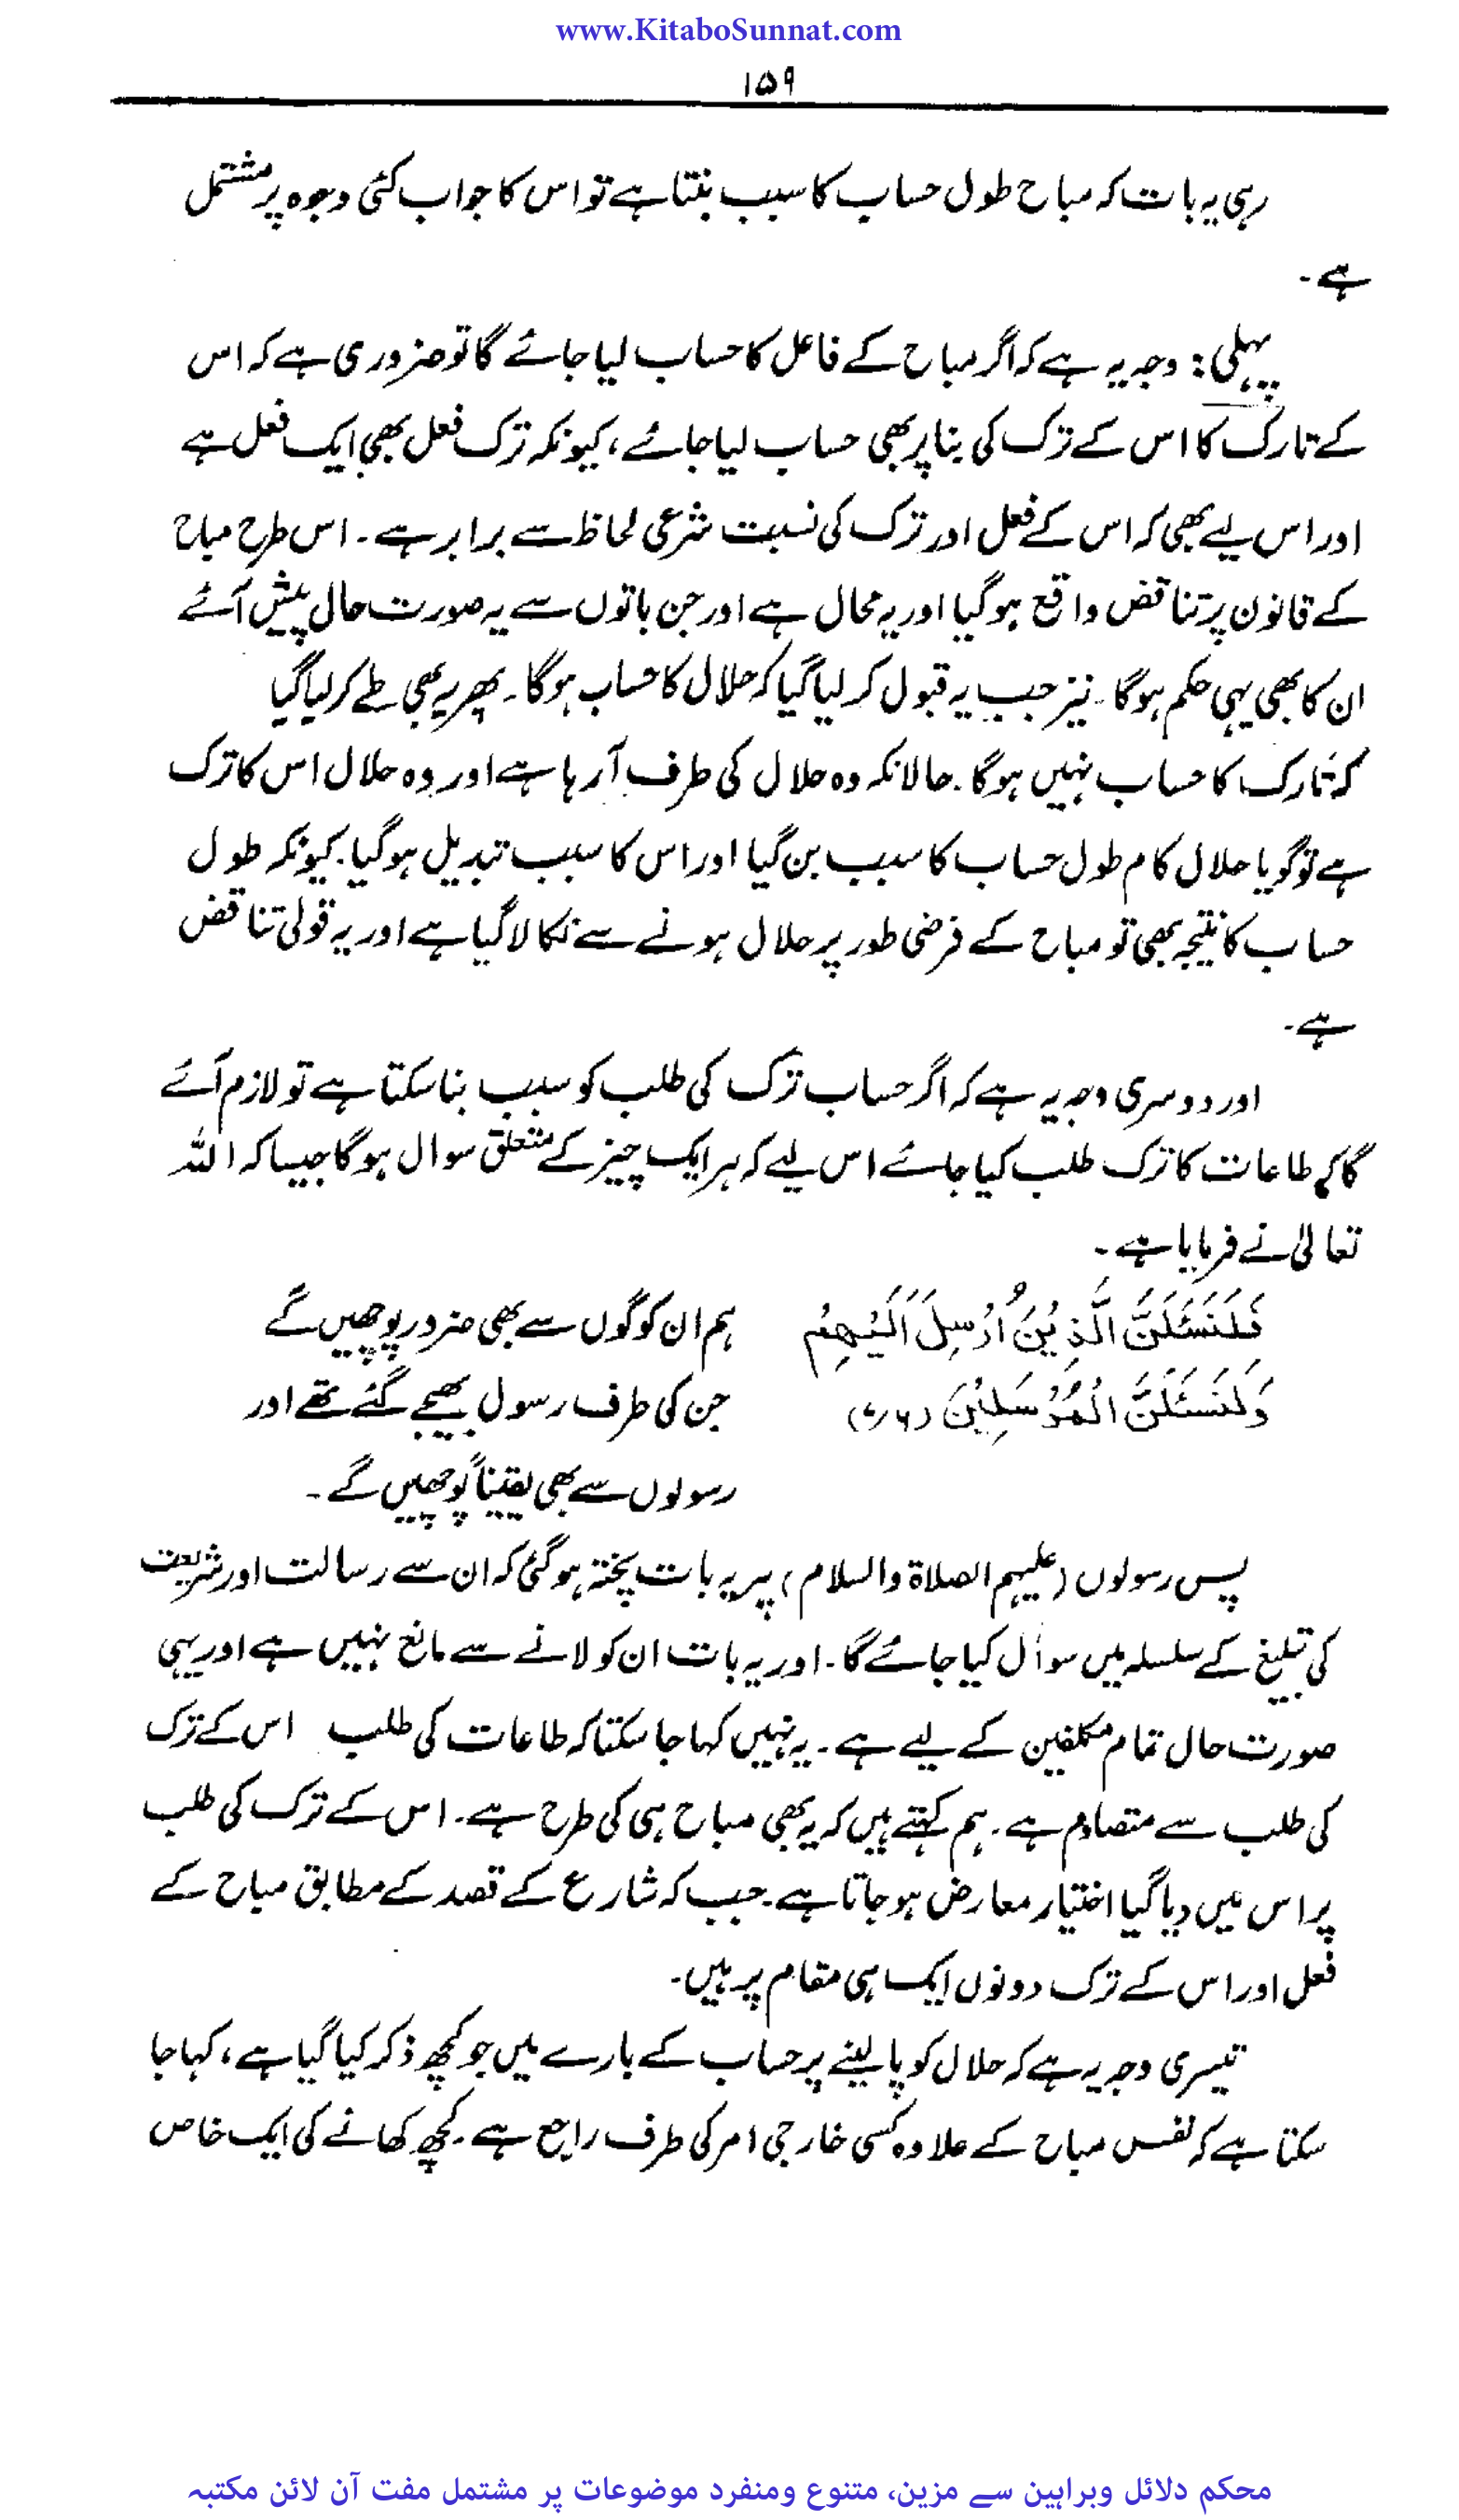 www.KitaboSunnat.com
۱۵۹
رہی یہ بات کہ مباح طول حساب کا سبب بنتا ہے تو اس کا جواب کئی وجوہ پر مشتمل
ہے۔
پہلی: وجہ یہ ہے کہ اگر مباح کے فاعل کا حساب لیا جائے گا تو ضروری ہے کہ اس
کے تارک کا اس کے ترک کی بنا پر بھی حساب لیا جائے، کیونکہ ترک فعل بھی ایک فعل ہے
اور اس لیے بھی کہ اس کے فعل اور ترک کی نسبت شرعی لحاظ سے برابر ہے۔ اس طرح مباح
کے قانون پر تناقض واقع ہو گیا اور یہ محال ہے اور جن باتوں سے یہ صورت حال پیش آئے
ان کا بھی یہی حکم ہو گا۔ نیز جب یہ قبول کر لیا گیا کہ حلال کا حساب ہو گا۔ پھر یہ بھی طے کر لیا گیا
کہ تارک کا حساب نہیں ہو گا۔ حالانکہ وہ حلال کی طرف آ رہا ہے اور وہ حلال اس کا ترک
ہے تو گویا حلال کام طول حساب کا سبب بن گیا اور اس کا سبب تبدیل ہو گیا۔ کیونکہ طول
حساب کا نتیجہ بھی تو مباح کے فرضی طور پر حلال ہونے سے نکالا گیا ہے اور یہ قولی تناقض
ہے۔
اور دوسری وجہ یہ ہے کہ اگر حساب ترک کی طلب کو سبب بنا سکتا ہے تو لازم آئے
گا کہ طاعات کا ترک طلب کیا جائے اس لیے کہ ہر ایک چیز کے متعلق سوال ہو گا جیسا کہ اللہ
تعالیٰ نے فرمایا ہے۔
فَلَنَسْئَلَنَّ الَّذِیْنَ اُرْسِلَ اِلَیْهِمْ ہم ان لوگوں سے بھی ضرور پوچھیں گے
وَلَنَسْئَلَنَّ الْمُرْسَلِیْنَ (۷/۶) جن کی طرف رسول بھیجے گئے تھے اور
رسولوں سے بھی یقیناً پوچھیں گے۔
پس رسولوں (علیہم الصلاۃ والسلام) پر یہ بات پختہ ہو گئی کہ ان سے رسالت اور شریعت
کی تبلیغ کے سلسلہ میں سوال کیا جائے گا۔ اور یہ بات ان کو لانے سے مانع نہیں ہے اور یہی
صورت حال تمام مکلفین کے لیے ہے۔ یہ نہیں کہا جا سکتا کہ طاعات کی طلب اس کے ترک
کی طلب سے متصادم ہے۔ ہم کہتے ہیں کہ یہ بھی مباح ہی کی طرح ہے۔ اس کے ترک کی طلب
پر اس میں دیا گیا اختیار معارض ہو جاتا ہے۔ جب کہ شارع کے قصد کے مطابق مباح کے
فعل اور اس کے ترک دونوں ایک ہی مقام پر ہیں۔
تیسری وجہ یہ ہے کہ حلال کو پا لینے پر حساب کے بارے میں جو کچھ ذکر کیا گیا ہے، کہا جا
سکتا ہے کہ نفس مباح کے علاوہ کسی خارجی امر کی طرف راجع ہے۔ کچھ کھانے کی ایک خاص
محکم دلائل وبراہین سے مزین، متنوع ومنفرد موضوعات پر مشتمل مفت آن لائن مکتبہ